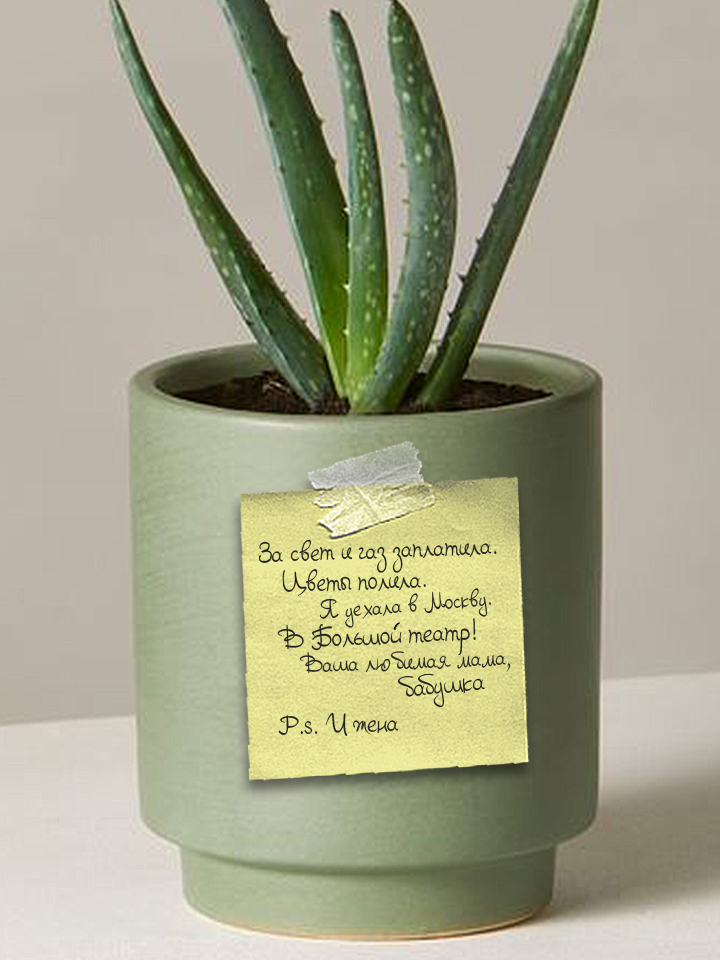 За свет и газ заплатила.
Цветы полила.
Я уехала в Москву.
В Большой театр!
Ваша любимая мама,
бабушка
P.s. И жена